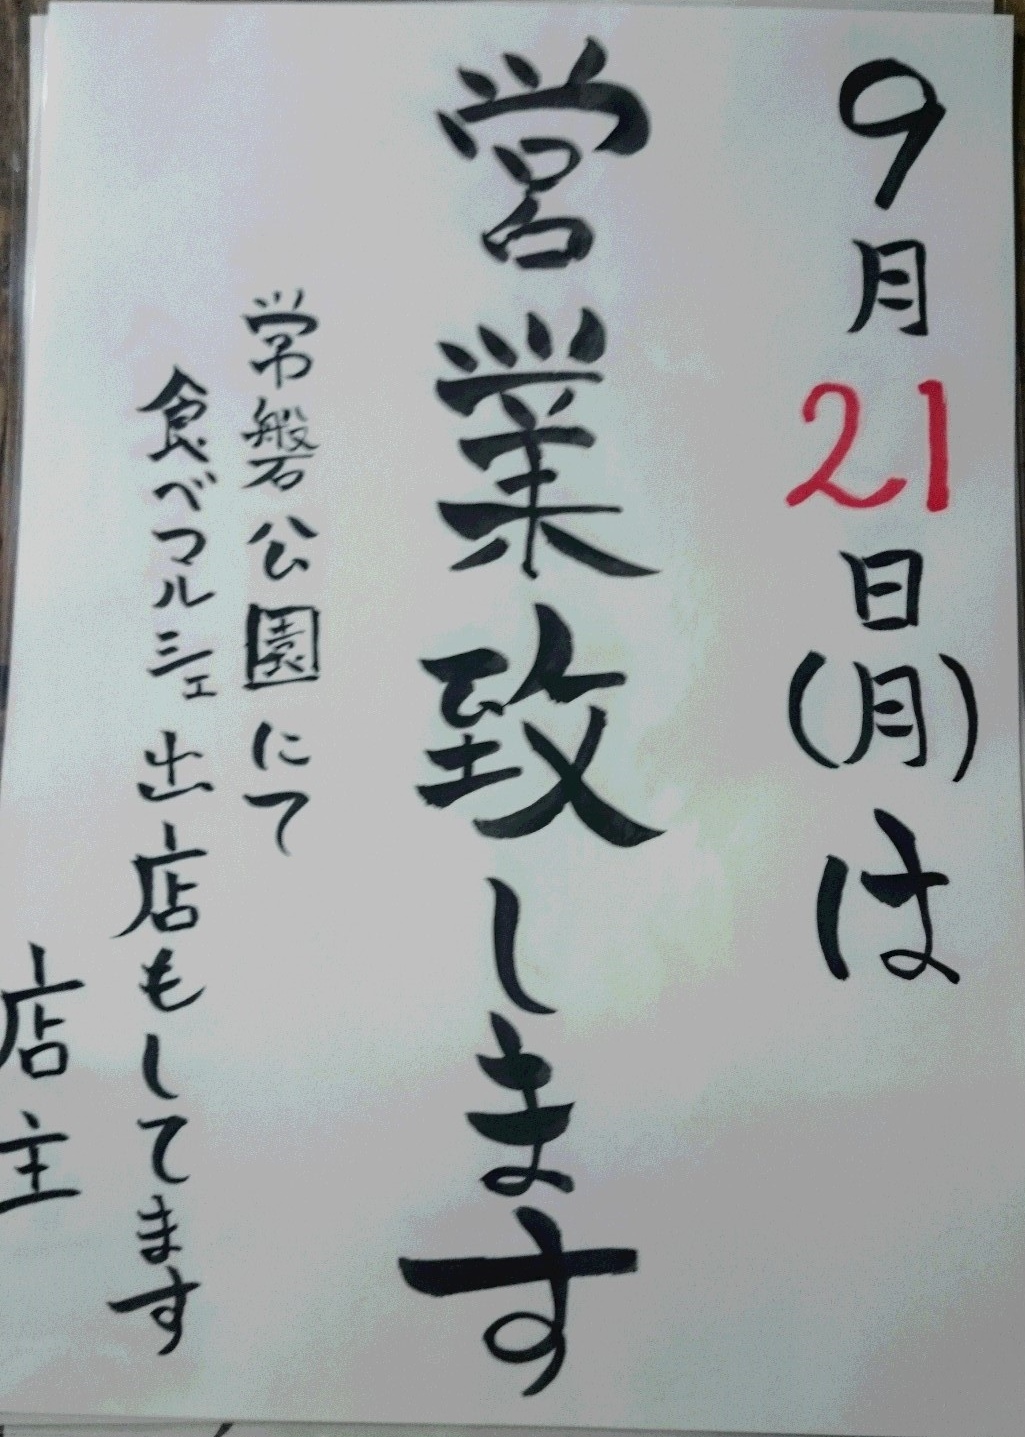 9月21日(月)は
営業致します
常磐公園にて
食べマルシェ出店もしてます
店主